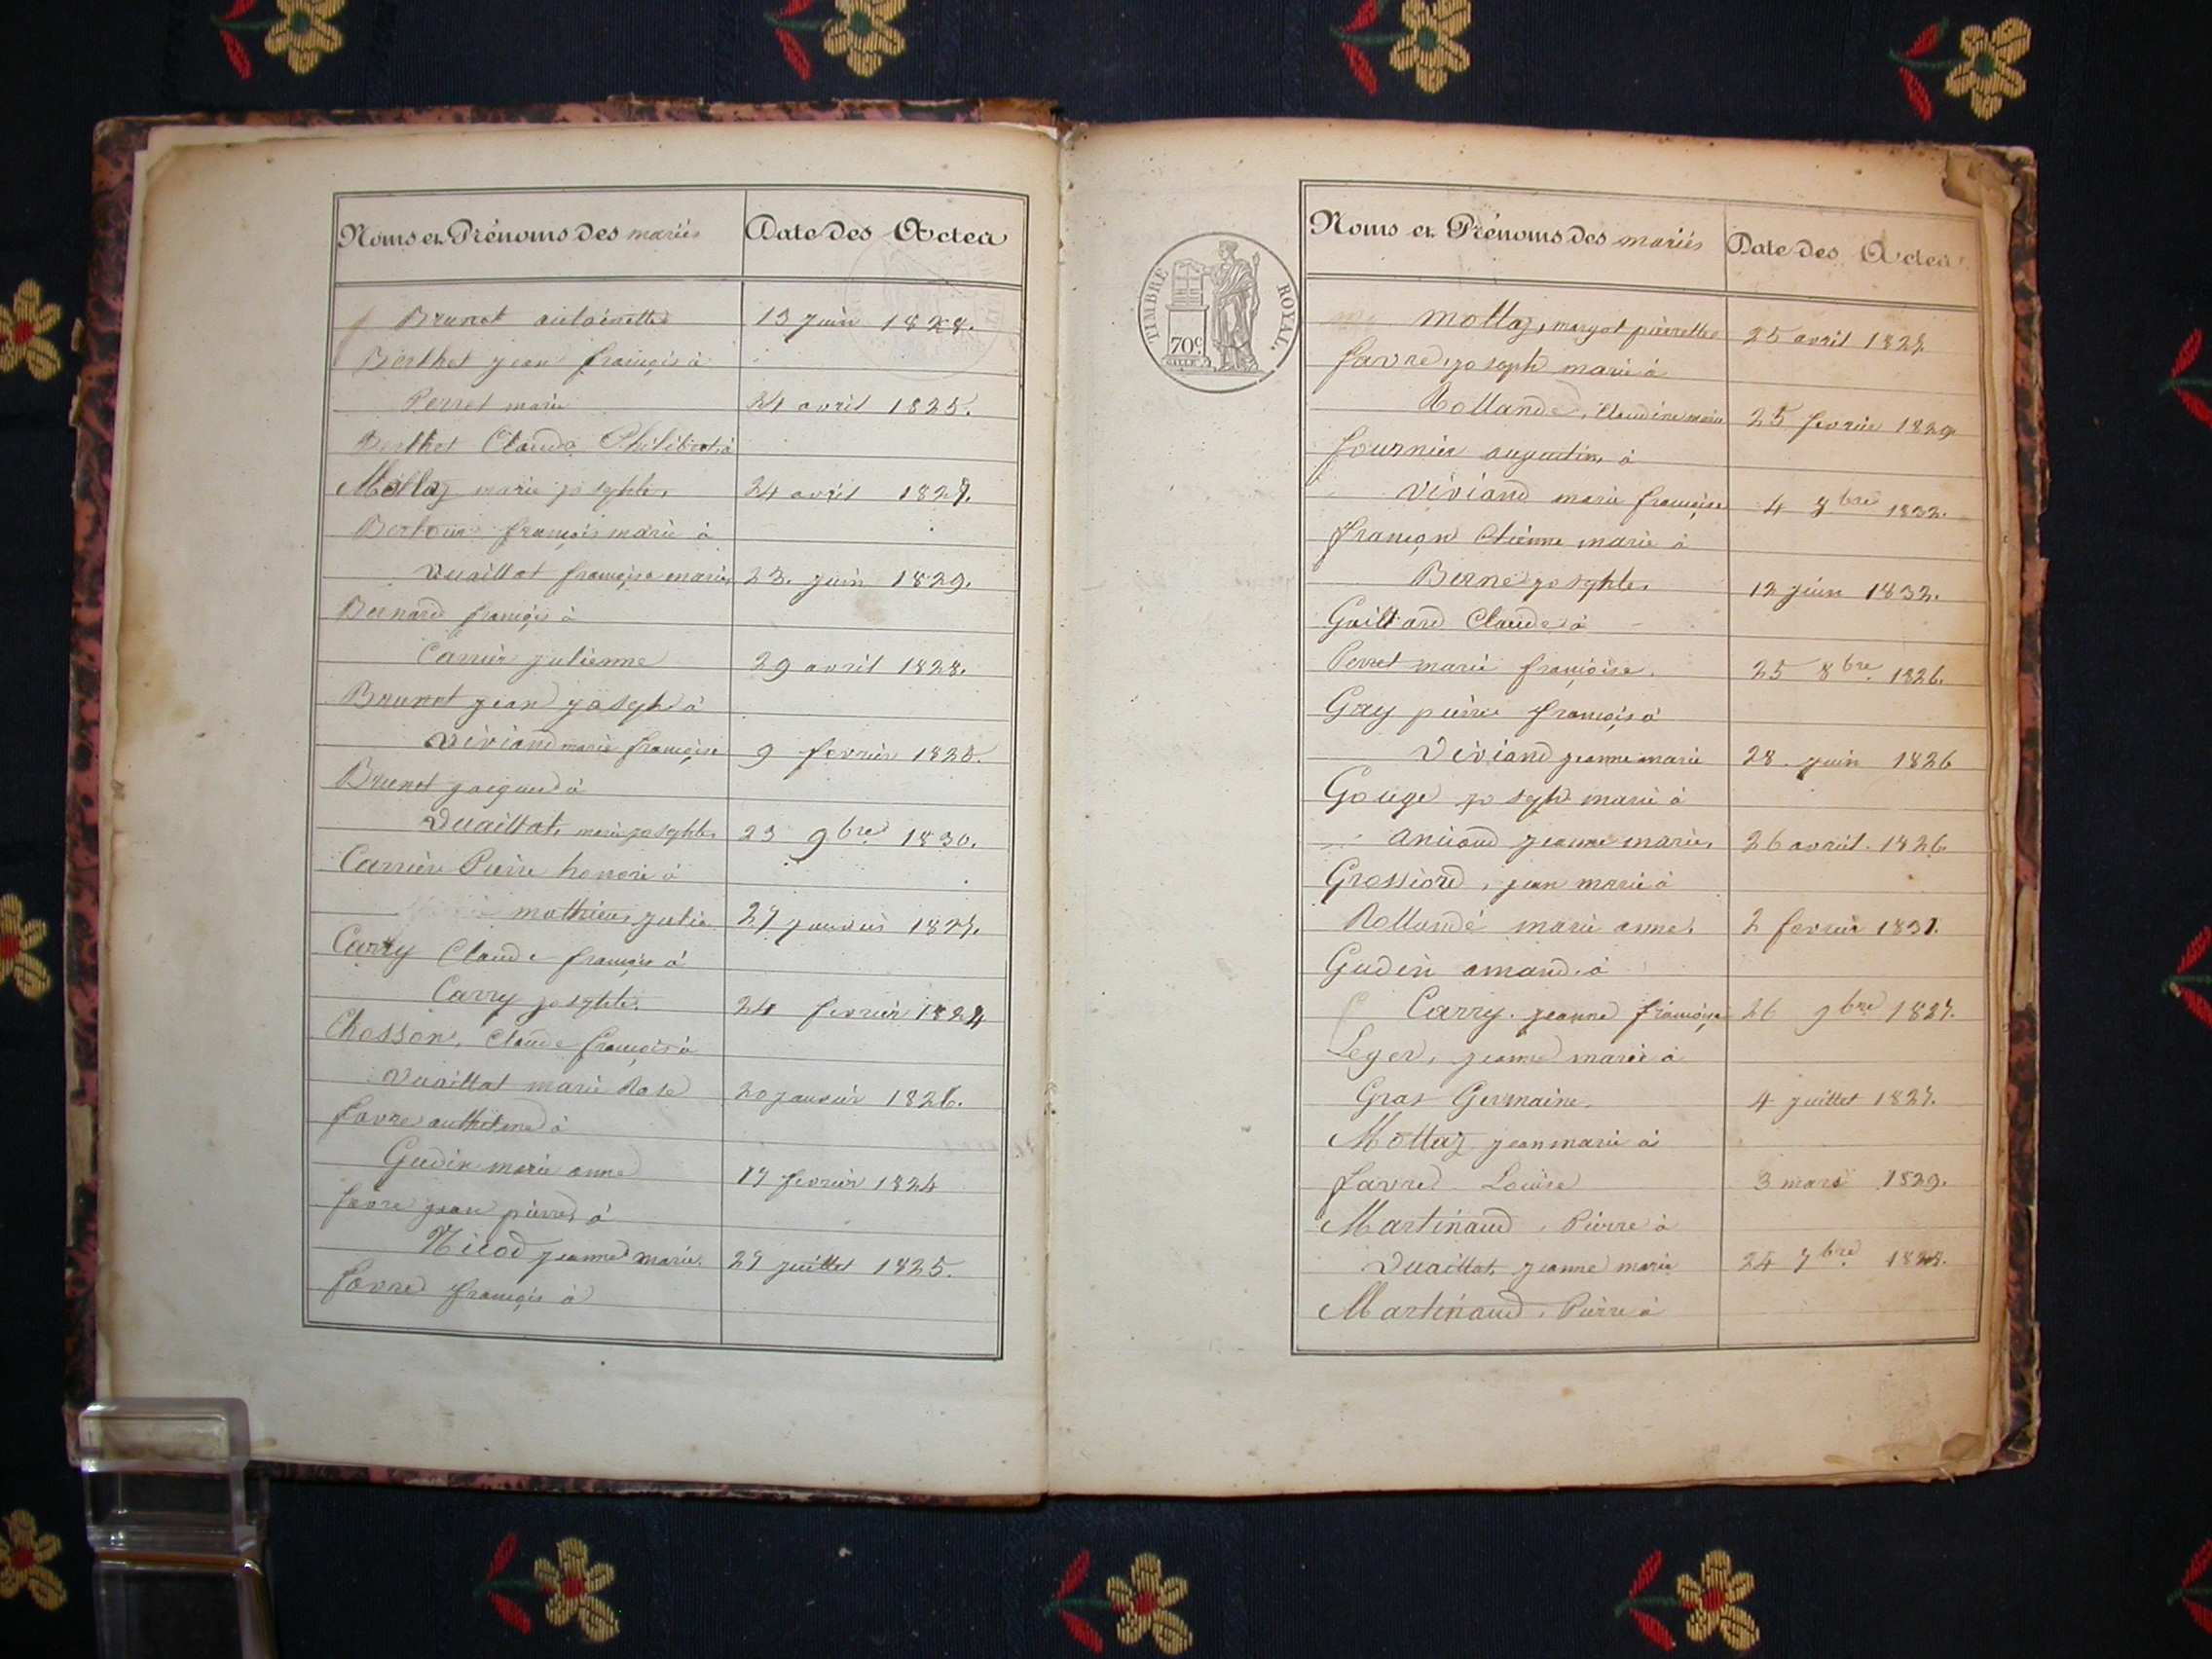 Noms et Prénoms des mariés Date des Actes
Brunet antoinette 13 juin 1828.
Berthet jean françois à
Perret marie 24 avril 1825.
Berthet Claude Philibert à
Mollaz marie josephte, 24 avril 1827.
françois marie à
Vuaillat françoise marie, 23. juin 1829.
Bernard françois à
Carrier julienne 29 avril 1828.
Brunet jean joseph à
Viviand marie françoise 9 fevrier 1825.
Brunet jacques à
Vuaillat, marie josephte, 23 9bre 1830.
Carrier Pierre honoré à
mathieu, julie 27 janvier 1827.
Carry Claude françois à
Carry josephte. 24 fevrier 1824
Chosson, Claude françois à
Vuaillat marie Rose 20 janvier 1826.
favre anthelme à
Gudin marie anne 17 fevrier 1824
favre jean pierre, à
Nicod jeanne marie. 27 juillet 1825.
favre françois à
TIMBRE ROYAL.
70c
Noms et Prénoms des mariés Date des Actes
Mollaz, margot pierrette 25 avril 1827.
favre, joseph marie à
Rollande, Claudine marie 25 fevrier 1829
fournier augustin, à
Viviand marie françoise 4 9bre 1832.
françon Etienne marie à
Berne josephte. 12 juin 1832.
Gaillard Claude à
Perret marie françoise. 25 8bre 1826.
Gray pierre françois à
Viviand jeanne marie 28. juin 1826
Gouge joseph marie à
aniaud jeanne marie, 26 avril. 1826
Grossiord, jean marie à
Rollande marie anne. 2 fevrier 1831.
Gudin amand. à
Carry. jeanne françoise 26 9bre 1827.
Leger, jeanne marie à
Gras Germaine. 4 juillet 1827.
Mollaz jean marie à
favre Louise 3 mars 1829.
Martinaud, Pierre à
Vuaillat, jeanne marie 24 7bre
Martinaud, Pierre à